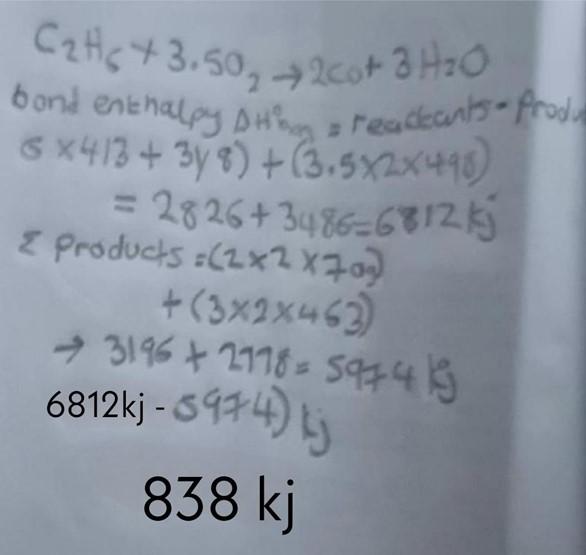 C2H6 + 3.5O2 → 2CO + 3H2O
bond enthalpy ΔH°rxn = reactants - Produ
6 x 413 + 348) + (3.5x2x498)
= 2826 + 3486 = 6812 kj
Σ Products = (2x2x
+ (3x2x463)
→ 3196 + 2778 = 5974 kj
6812kj - 5974) kj
838 kj